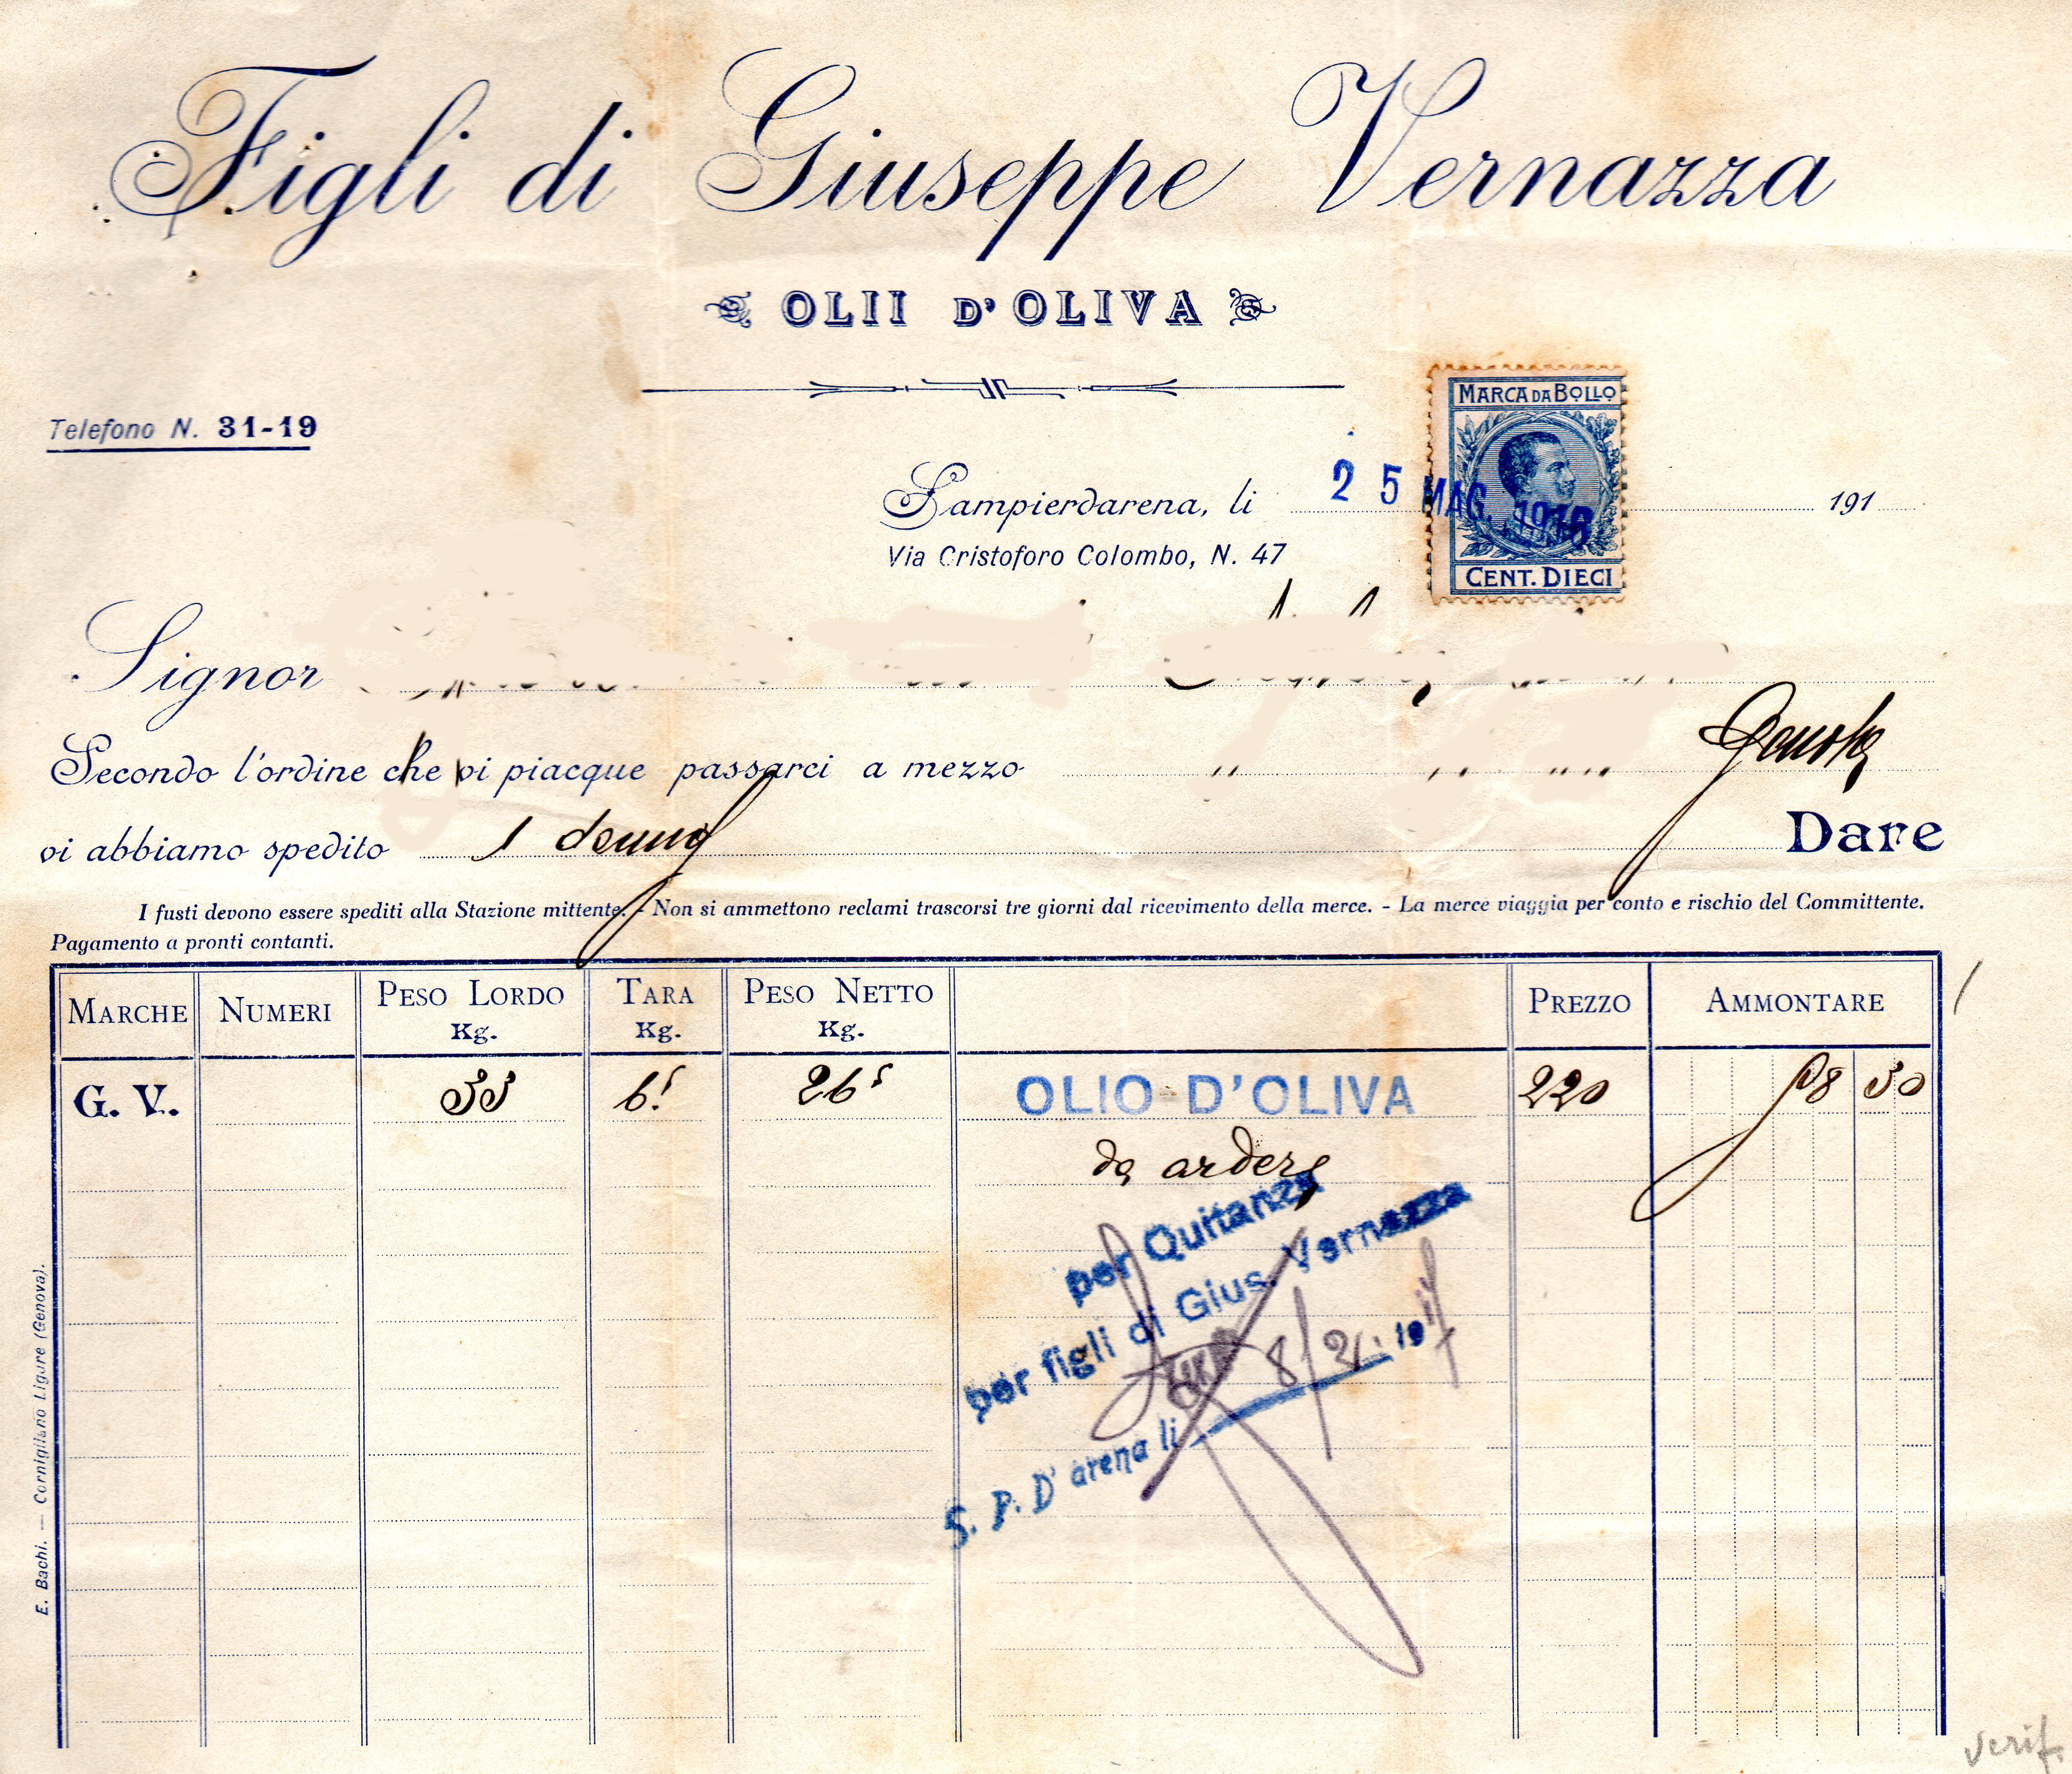 Figli di Giuseppe Vernazza
OLII D'OLIVA
MARCA DA BOLLO
CENT. DIECI
Telefono N. 31-19
Sampierdarena, li 25 MAG. 1916 191
Via Cristoforo Colombo, N. 47
Signor
Secondo l'ordine che vi piacque passarci a mezzo
vi abbiamo spedito 1 Dare
I fusti devono essere spediti alla Stazione mittente. - Non si ammettono reclami trascorsi tre giorni dal ricevimento della merce. - La merce viaggia per conto e rischio del Committente.
Pagamento a pronti contanti.
MARCHE NUMERI PESO LORDO Kg. TARA Kg. PESO NETTO Kg. PREZZO AMMONTARE
G. V. 33 6.5 26 5 OLIO D'OLIVA 220 58 30
da ardere
per Quitanza
per figli di Gius. Vernazza
S. P. D'arena li 8/2/ 19
E. Bachi. — Cornigliano Ligure (Genova).
verif.